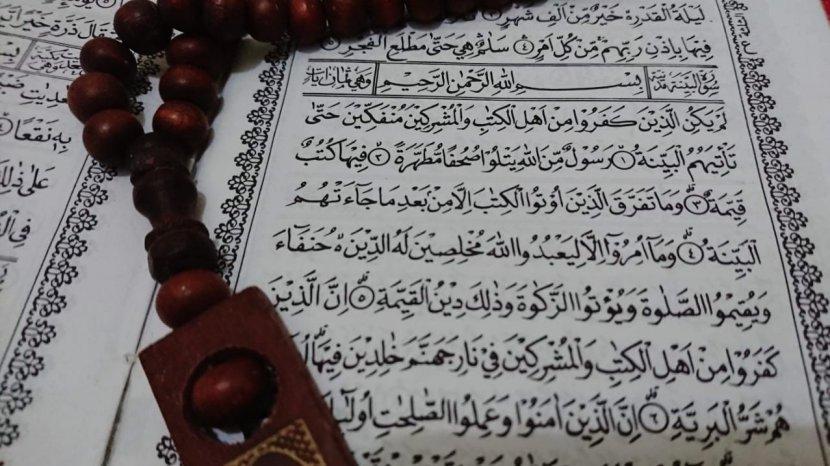 لَيْلَةُ الْقَدْرِ ە خَيْرٌ مِّنْ اَلْفِ شَهْرٍ
فِيْهَا بِاِذْنِ رَبِّهِمْ مِّنْ كُلِّ اَمْرٍ ۛ ﴿٤﴾ سَلٰمٌ ۛ هِيَ حَتّٰى مَطْلَعِ الْفَجْرِ
بِسْمِ اللّٰهِ الرَّحْمٰنِ الرَّحِيْمِ
لَمْ يَكُنِ الَّذِيْنَ كَفَرُوْا مِنْ اَهْلِ الْكِتٰبِ وَالْمُشْرِكِيْنَ مُنْفَكِّيْنَ حَتّٰى
تَأْتِيَهُمُ الْبَيِّنَةُ ﴿١﴾ رَسُوْلٌ مِّنَ اللّٰهِ يَتْلُوْا صُحُفًا مُّطَهَّرَةً ﴿٢﴾ فِيْهَا كُتُبٌ
قَيِّمَةٌ ﴿٣﴾ وَمَا تَفَرَّقَ الَّذِيْنَ اُوْتُوا الْكِتٰبَ اِلَّا مِنْ بَعْدِ مَا جَآءَتْهُمُ
الْبَيِّنَةُ ﴿٤﴾ وَمَآ اُمِرُوْٓا اِلَّا لِيَعْبُدُوا اللّٰهَ مُخْلِصِيْنَ لَهُ الدِّيْنَ ە حُنَفَآءَ
وَيُقِيْمُوا الصَّلٰوةَ وَيُؤْتُوا الزَّكٰوةَ وَذٰلِكَ دِيْنُ الْقَيِّمَةِ ﴿٥﴾ اِنَّ الَّذِيْنَ
كَفَرُوْا مِنْ اَهْلِ الْكِتٰبِ وَالْمُشْرِكِيْنَ فِيْ نَارِ جَهَنَّمَ خٰلِدِيْنَ فِيْهَا
هُمْ شَرُّ الْبَرِيَّةِ ﴿٦﴾ اِنَّ الَّذِيْنَ اٰمَنُوْا وَعَمِلُوا الصّٰلِحٰتِ